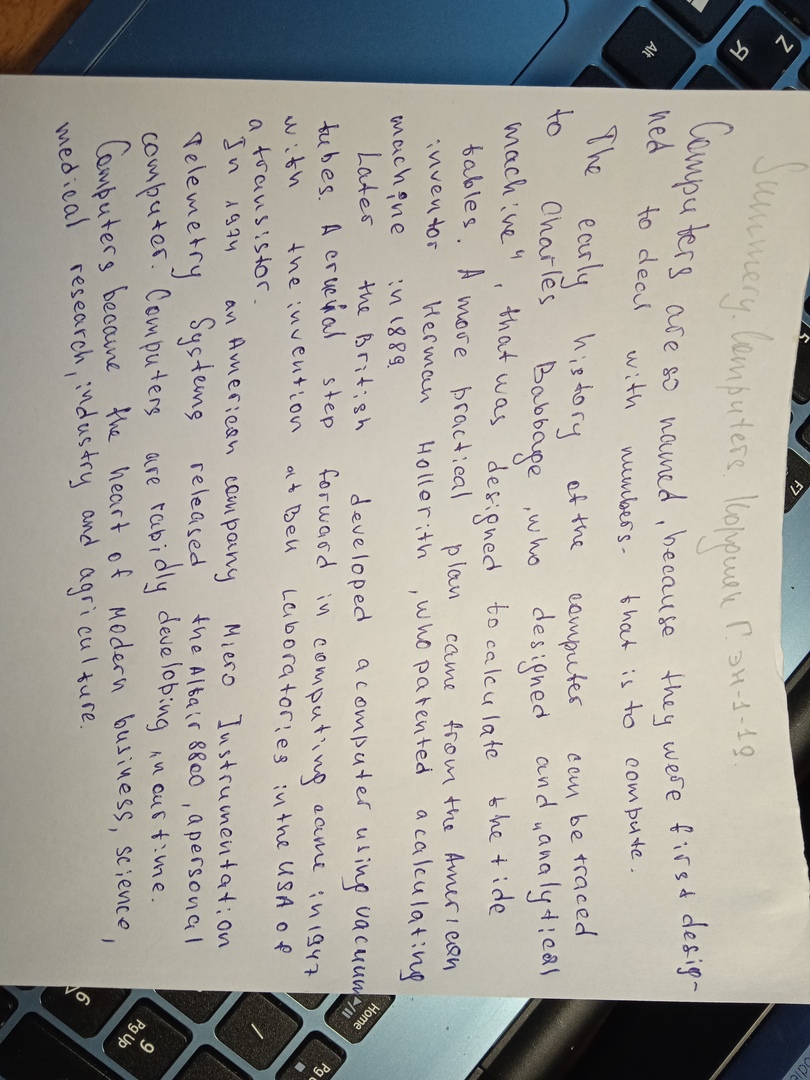 Summery. Computers. Коришен Г. ЭН-1-19.
Computers are so named, because they were first desig-
ned to deal with numbers- that is to compute.
The early history of the computer can be traced
to Charles Babbage, who designed and „analytical
machine", that was designed to calculate the tide
tables. A more practical plan came from the American
inventor Herman Hollerith, who patented a calculating
machine in 1889.
Later the British developed a computer using vacuum
tubes. A crucial step forward in computing came in 1947
with the invention at Bell Laboratories in the USA of
a transistor.
In 1974 an American company Micro Instrumentation
Telemetry Systems released the Altair 8800, a personal
computer. Computers are rapidly developing in our time.
Computers became the heart of modern business, science,
medical research, industry and agriculture.
Alt
Я
Z
F7
5
6
9
PgUp
/
Home